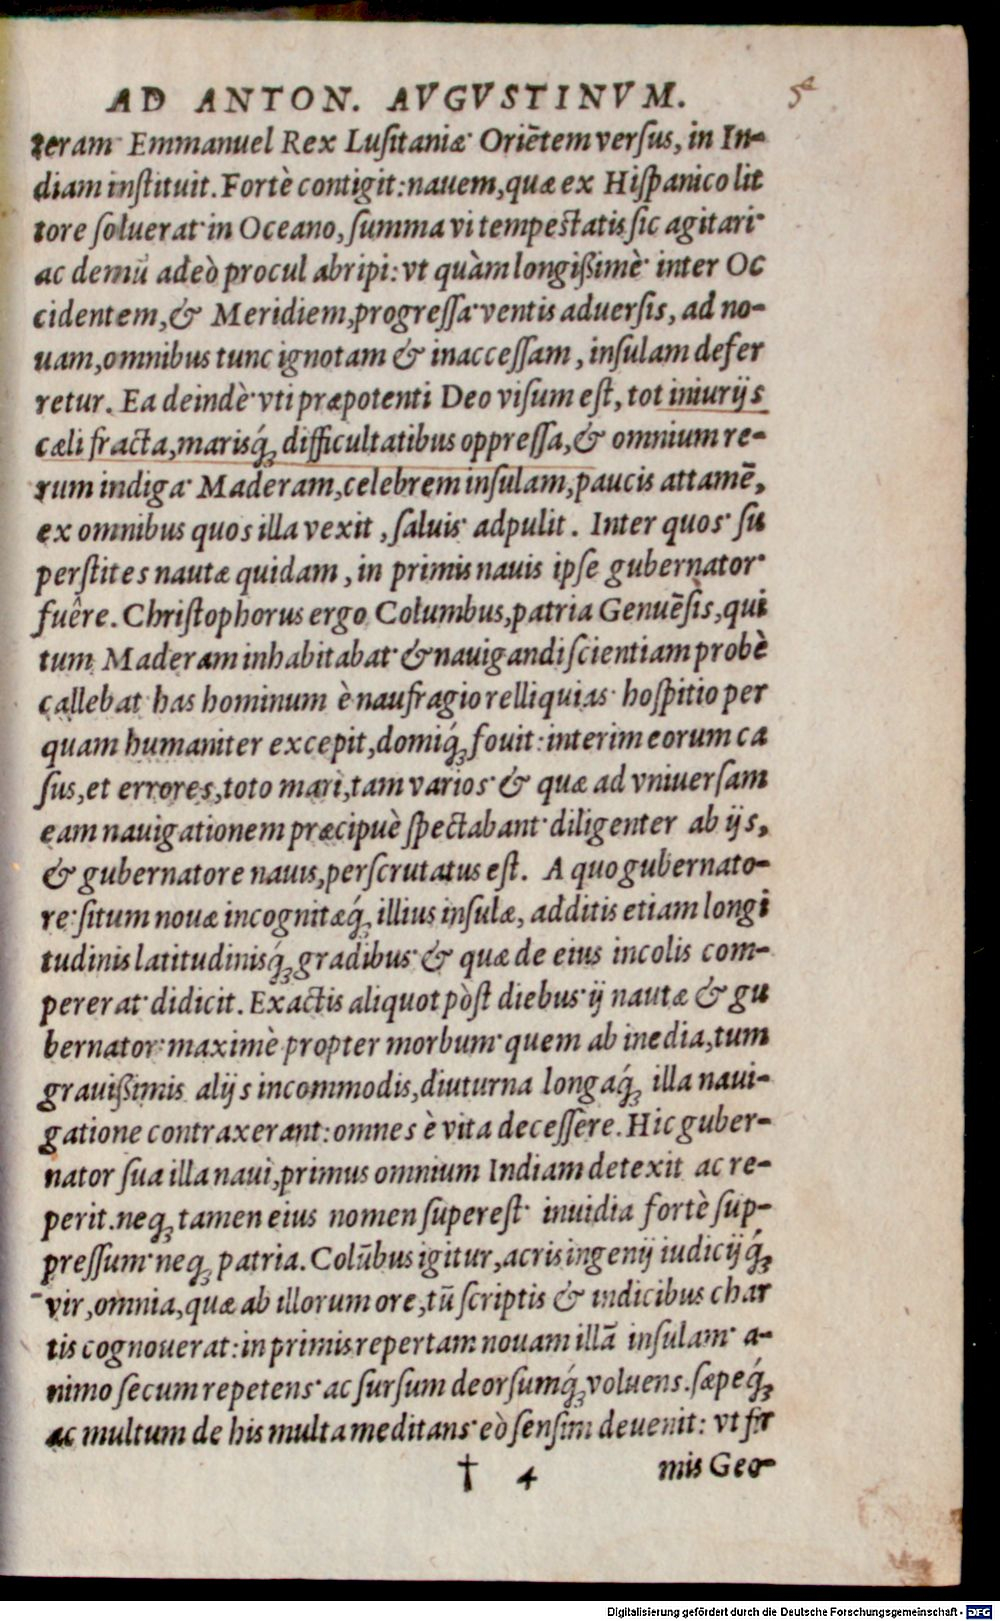 AD ANTON. AVGVSTINVM. 5
teram Emmanuel Rex Lusitaniæ Oriẽtem versus, in In-
diam instituit. Fortè contigit: nauem, quæ ex Hispanico lit
tore soluerat in Oceano, summa vi tempestatis sic agitari
ac demũ adeò procul abripi: vt quàm longißimè inter Oc
cidentem, & Meridiem, progressa ventis aduersis, ad no-
uam, omnibus tunc ignotam & inaccessam, insulam defer
retur. Ea deindè vti præpotenti Deo visum est, tot iniurijs
cæli fracta, marisq́; difficultatibus oppressa, & omnium re-
rum indiga Maderam, celebrem insulam, paucis attamẽ,
ex omnibus quos illa vexit, saluis adpulit. Inter quos su
perstites nautæ quidam, in primis nauis ipse gubernator
fuêre. Christophorus ergo Columbus, patria Genuẽsis, qui
tum Maderam inhabitabat & nauigandi scientiam probè
callebat has hominum è naufragio relliquias hospitio per
quam humaniter excepit, domiq́; fouit: interim eorum ca
sus, et errores, toto mari, tam varios & quæ ad vniuersam
eam nauigationem præcipuè spectabant diligenter ab ijs,
& gubernatore nauis, perscrutatus est. A quo gubernato-
re: situm nouæ incognitæq́; illius insulæ, additis etiam longi
tudinis latitudinisq́; gradibus & quæ de eius incolis com-
pererat didicit. Exactis aliquot pòst diebus ij nautæ & gu
bernator maximè propter morbum quem ab inedia, tum
grauißimis alijs incommodis, diuturna longaq́; illa naui-
gatione contraxerant: omnes è vita decessère. Hic guber-
nator sua illa naui, primus omnium Indiam detexit ac re-
perit. neq; tamen eius nomen superest inuidia fortè sup-
pressum neq; patria. Colũbus igitur, acris ingenij iudicijq́;
vir, omnia, quæ ab illorum ore, tũ scriptis & indicibus char
tis cognouerat: in primis repertam nouam illã insulam a-
nimo secum repetens ac sursum deorsumq́; voluens. sæpeq́;
ac multum de his multa meditans eò sensim deuenit: vt fir
† 4 mis Geo-
Digitalisierung gefördert durch die Deutsche Forschungsgemeinschaft - DFG